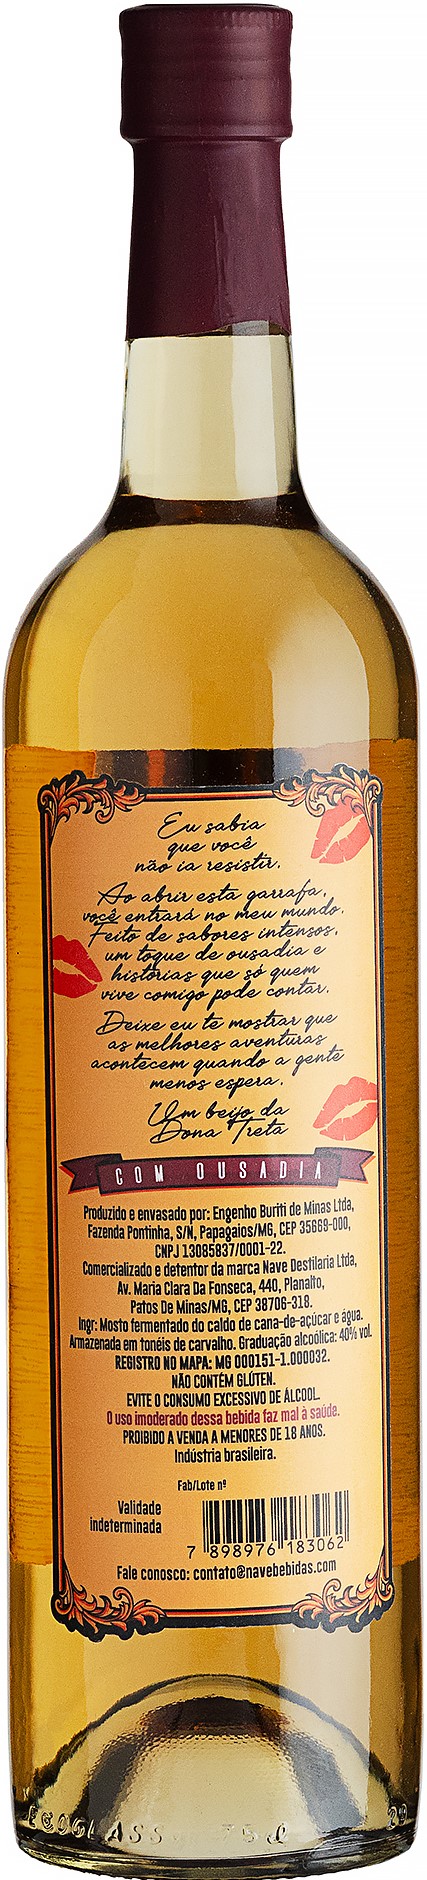 Eu sabia
que você
não ia resistir.
Ao abrir esta garrafa,
você entrará no meu mundo.
Feito de sabores intensos,
um toque de ousadia e
histórias que só quem
vive comigo pode contar.
Deixe eu te mostrar que
as melhores aventuras
acontecem quando a gente
menos espera.
Um beijo da
Dona Treta
COM OUSADIA
Produzido e envasado por: Engenho Buriti de Minas Ltda,
Fazenda Pontinha, S/N, Papagaios/MG, CEP 35669-000,
CNPJ 13085837/0001-22.
Comercializado e detentor da marca Nave Destilaria Ltda,
Av. Maria Clara Da Fonseca, 440, Planalto,
Patos De Minas/MG, CEP 38706-318.
Ingr: Mosto fermentado do caldo de cana-de-açúcar e água.
Armazenada em tonéis de carvalho. Graduação alcoólica: 40% vol.
REGISTRO NO MAPA: MG 000151-1.000032.
NÃO CONTÉM GLÚTEN.
EVITE O CONSUMO EXCESSIVO DE ÁLCOOL.
O uso imoderado dessa bebida faz mal à saúde.
PROIBIDO A VENDA A MENORES DE 18 ANOS.
Indústria brasileira.
Fab/Lote nº
Validade
indeterminada
7 898976 183062
Fale conosco: contato@navebebidas.com